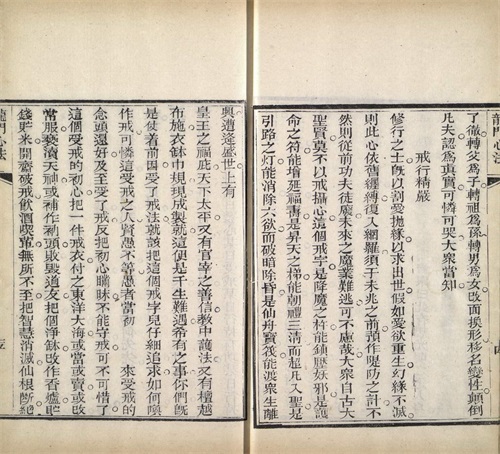 龍門心法
了徹轉父爲子轉祖爲孫轉男爲女改面換形移名變性顛倒
凡夫認爲眞實可憐可哭大衆當知
戒行精嚴
修行之士旣以割愛拋緣以求出世假如愛欲重生幻緣不滅
則此心依舊纏縛復入網羅須于未兆之前預作隄防之計不
然則從前功夫徒廢未來之魔業難逃可不慮哉大衆自古大
聖賢莫不以戒攝心這個戒字是降魔之杵能鎮壓妖邪是護
命之符能增延福壽是昇天之梯能朝禮三清而超凡入聖是
引路之灯能消除六欲而破暗除昏是仙舟寶筏能渡衆生離
龍門心法
興遭逢盛世上有
皇王之福庇天下太平又有官宰之善信教中護法又有檀越
布施衣鉢中規現成製就這便是千生難遇希有之事你們旣
是伏着前因受了戒法就該把這個戒字兒仔細追求如何喚
作戒可憐這受戒之人賢愚不等愚者當初
來受戒的
念頭還好及至受了戒反把初心瞞昧不能守戒可不可惜了
這個受戒的初心把一件戒衣付之東洋大海或當或賣或改
常服褻瀆天神或補作衲頭敗毀道友把個淨鉢改作香爐耙
錢貯米開齋破戒飲酒喫葷無所不至把智慧消滅仙根斷絕